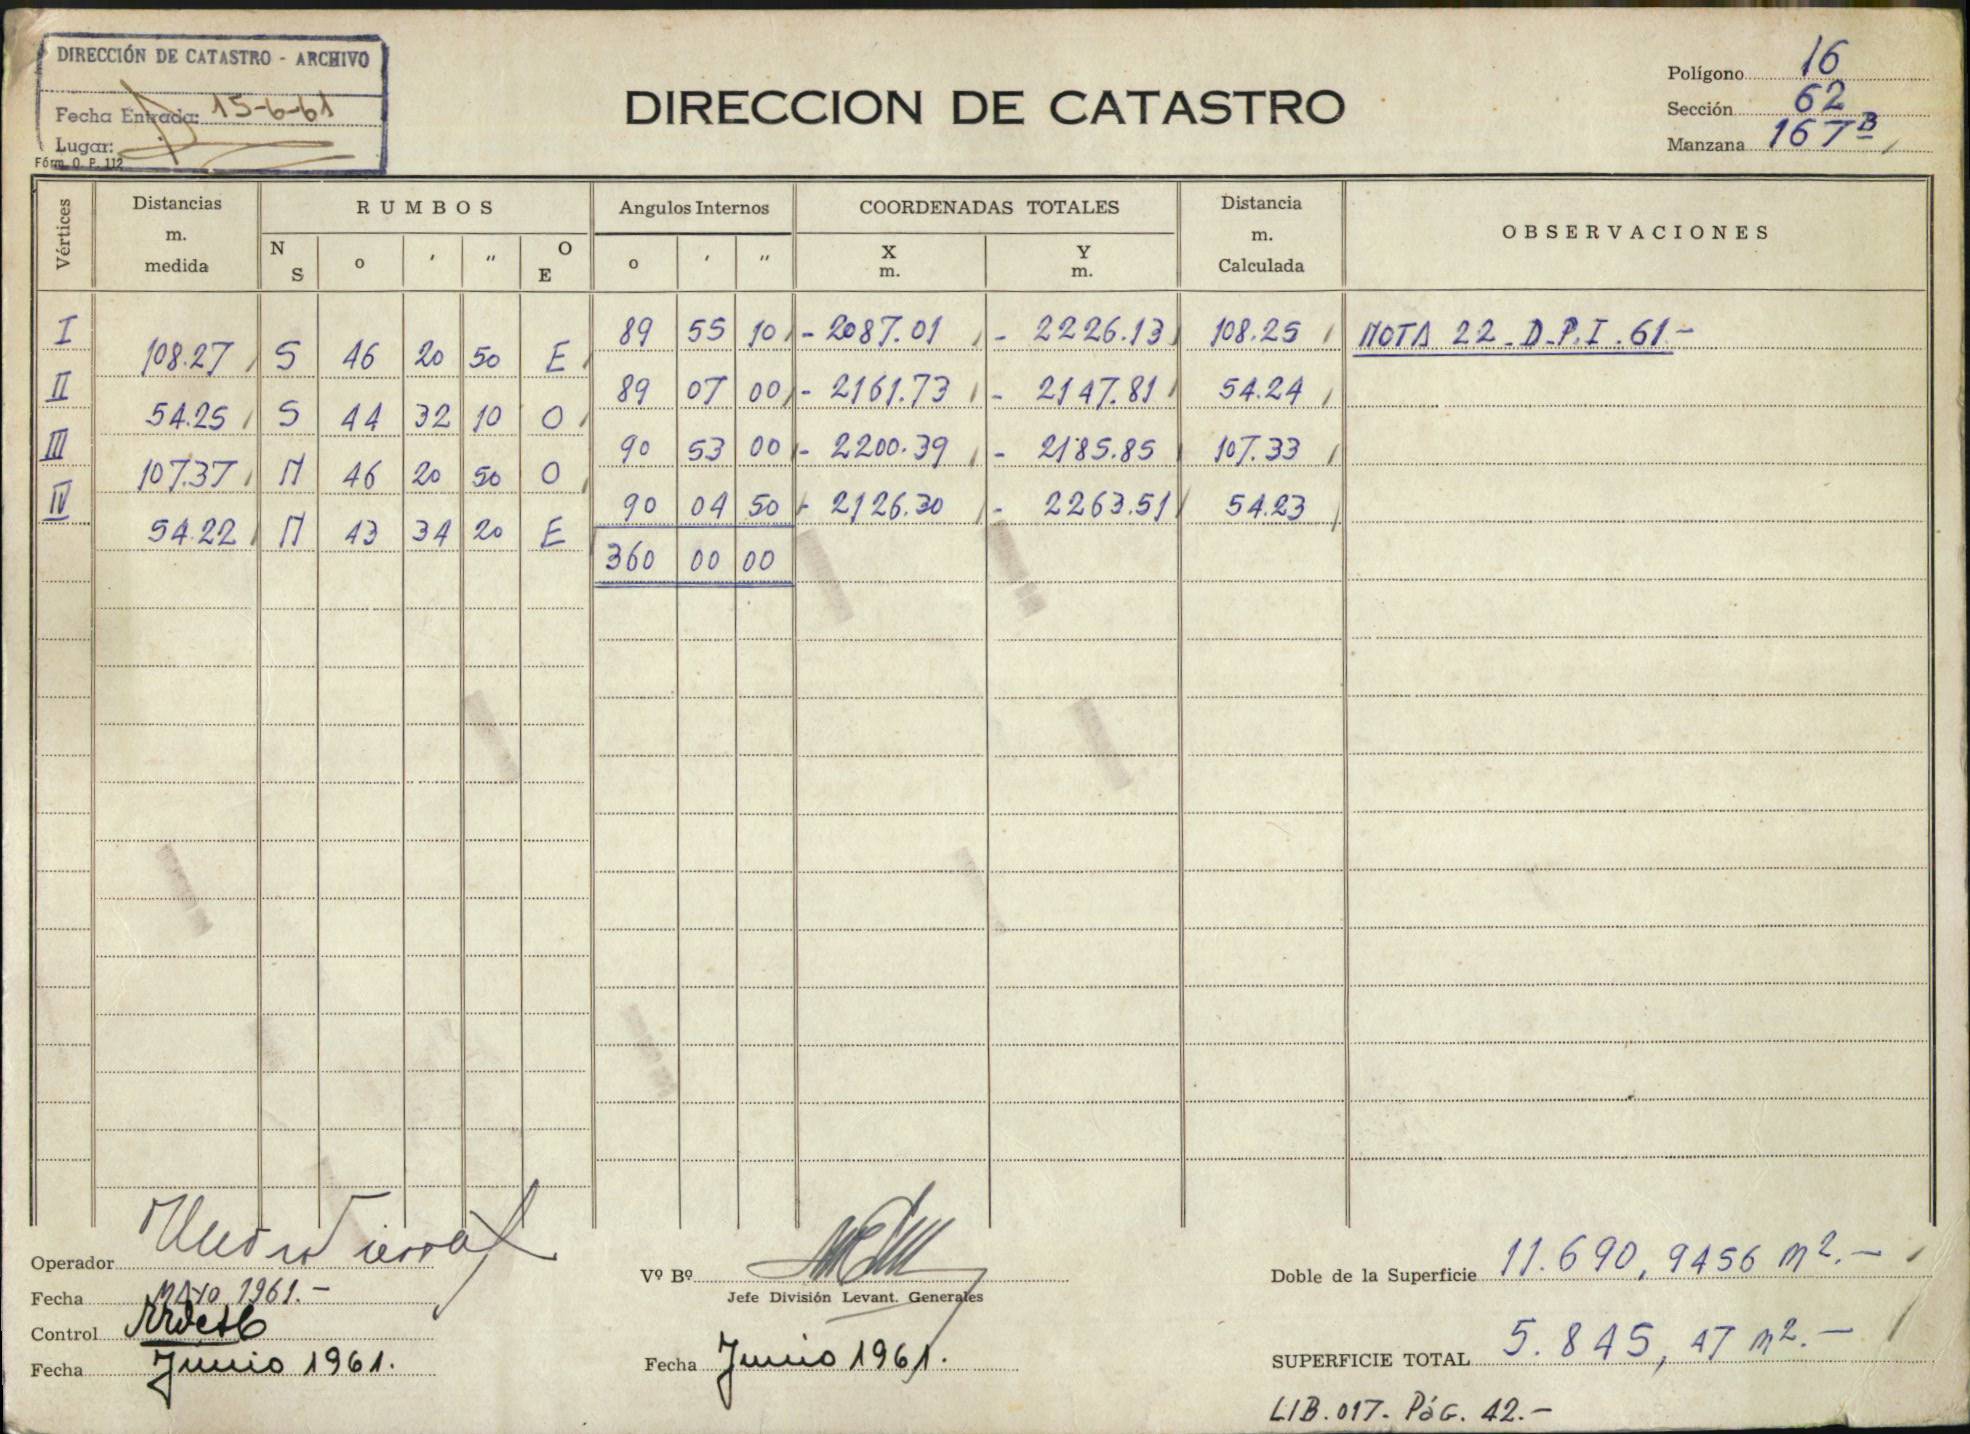 DIRECCIÓN DE CATASTRO - ARCHIVO
Fecha Entrada: 15-6-61
Lugar:
Fórm. O. P. 112
DIRECCION DE CATASTRO
Polígono 16
Sección 62
Manzana 167 B
Vértices
Distancias m. medida
RUMBOS
N S o ' " O E
Angulos Internos
o ' "
COORDENADAS TOTALES
X m. Y m.
Distancia m. Calculada
OBSERVACIONES
I 89 55 10 - 2087.01 - 2226.13 108.25 NOTA 22-D.P.I.61-
108.27 S 46 20 50 E
II 89 07 00 - 2161.73 - 2147.81 54.24
54.25 S 44 32 10 O
III 90 53 00 - 2200.39 - 2185.85 107.33
107.37 N 46 20 50 O
IV 90 04 50 - 2126.30 - 2263.51 54.23
54.22 N 43 34 20 E
360 00 00
Operador
Fecha Mayo 1961.-
Control
Fecha Junio 1961.
Vº Bº
Jefe División Levant. Generales
Fecha Junio 1961.
Doble de la Superficie 11.690,9456 m2.-
SUPERFICIE TOTAL 5.845,47 m2.-
LIB. 017. Pág. 42.-